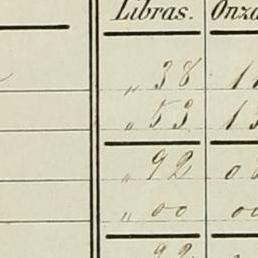 Libras. Onza
„ 38 1
„ 53 13
„ 92 08
„ 00 00
92